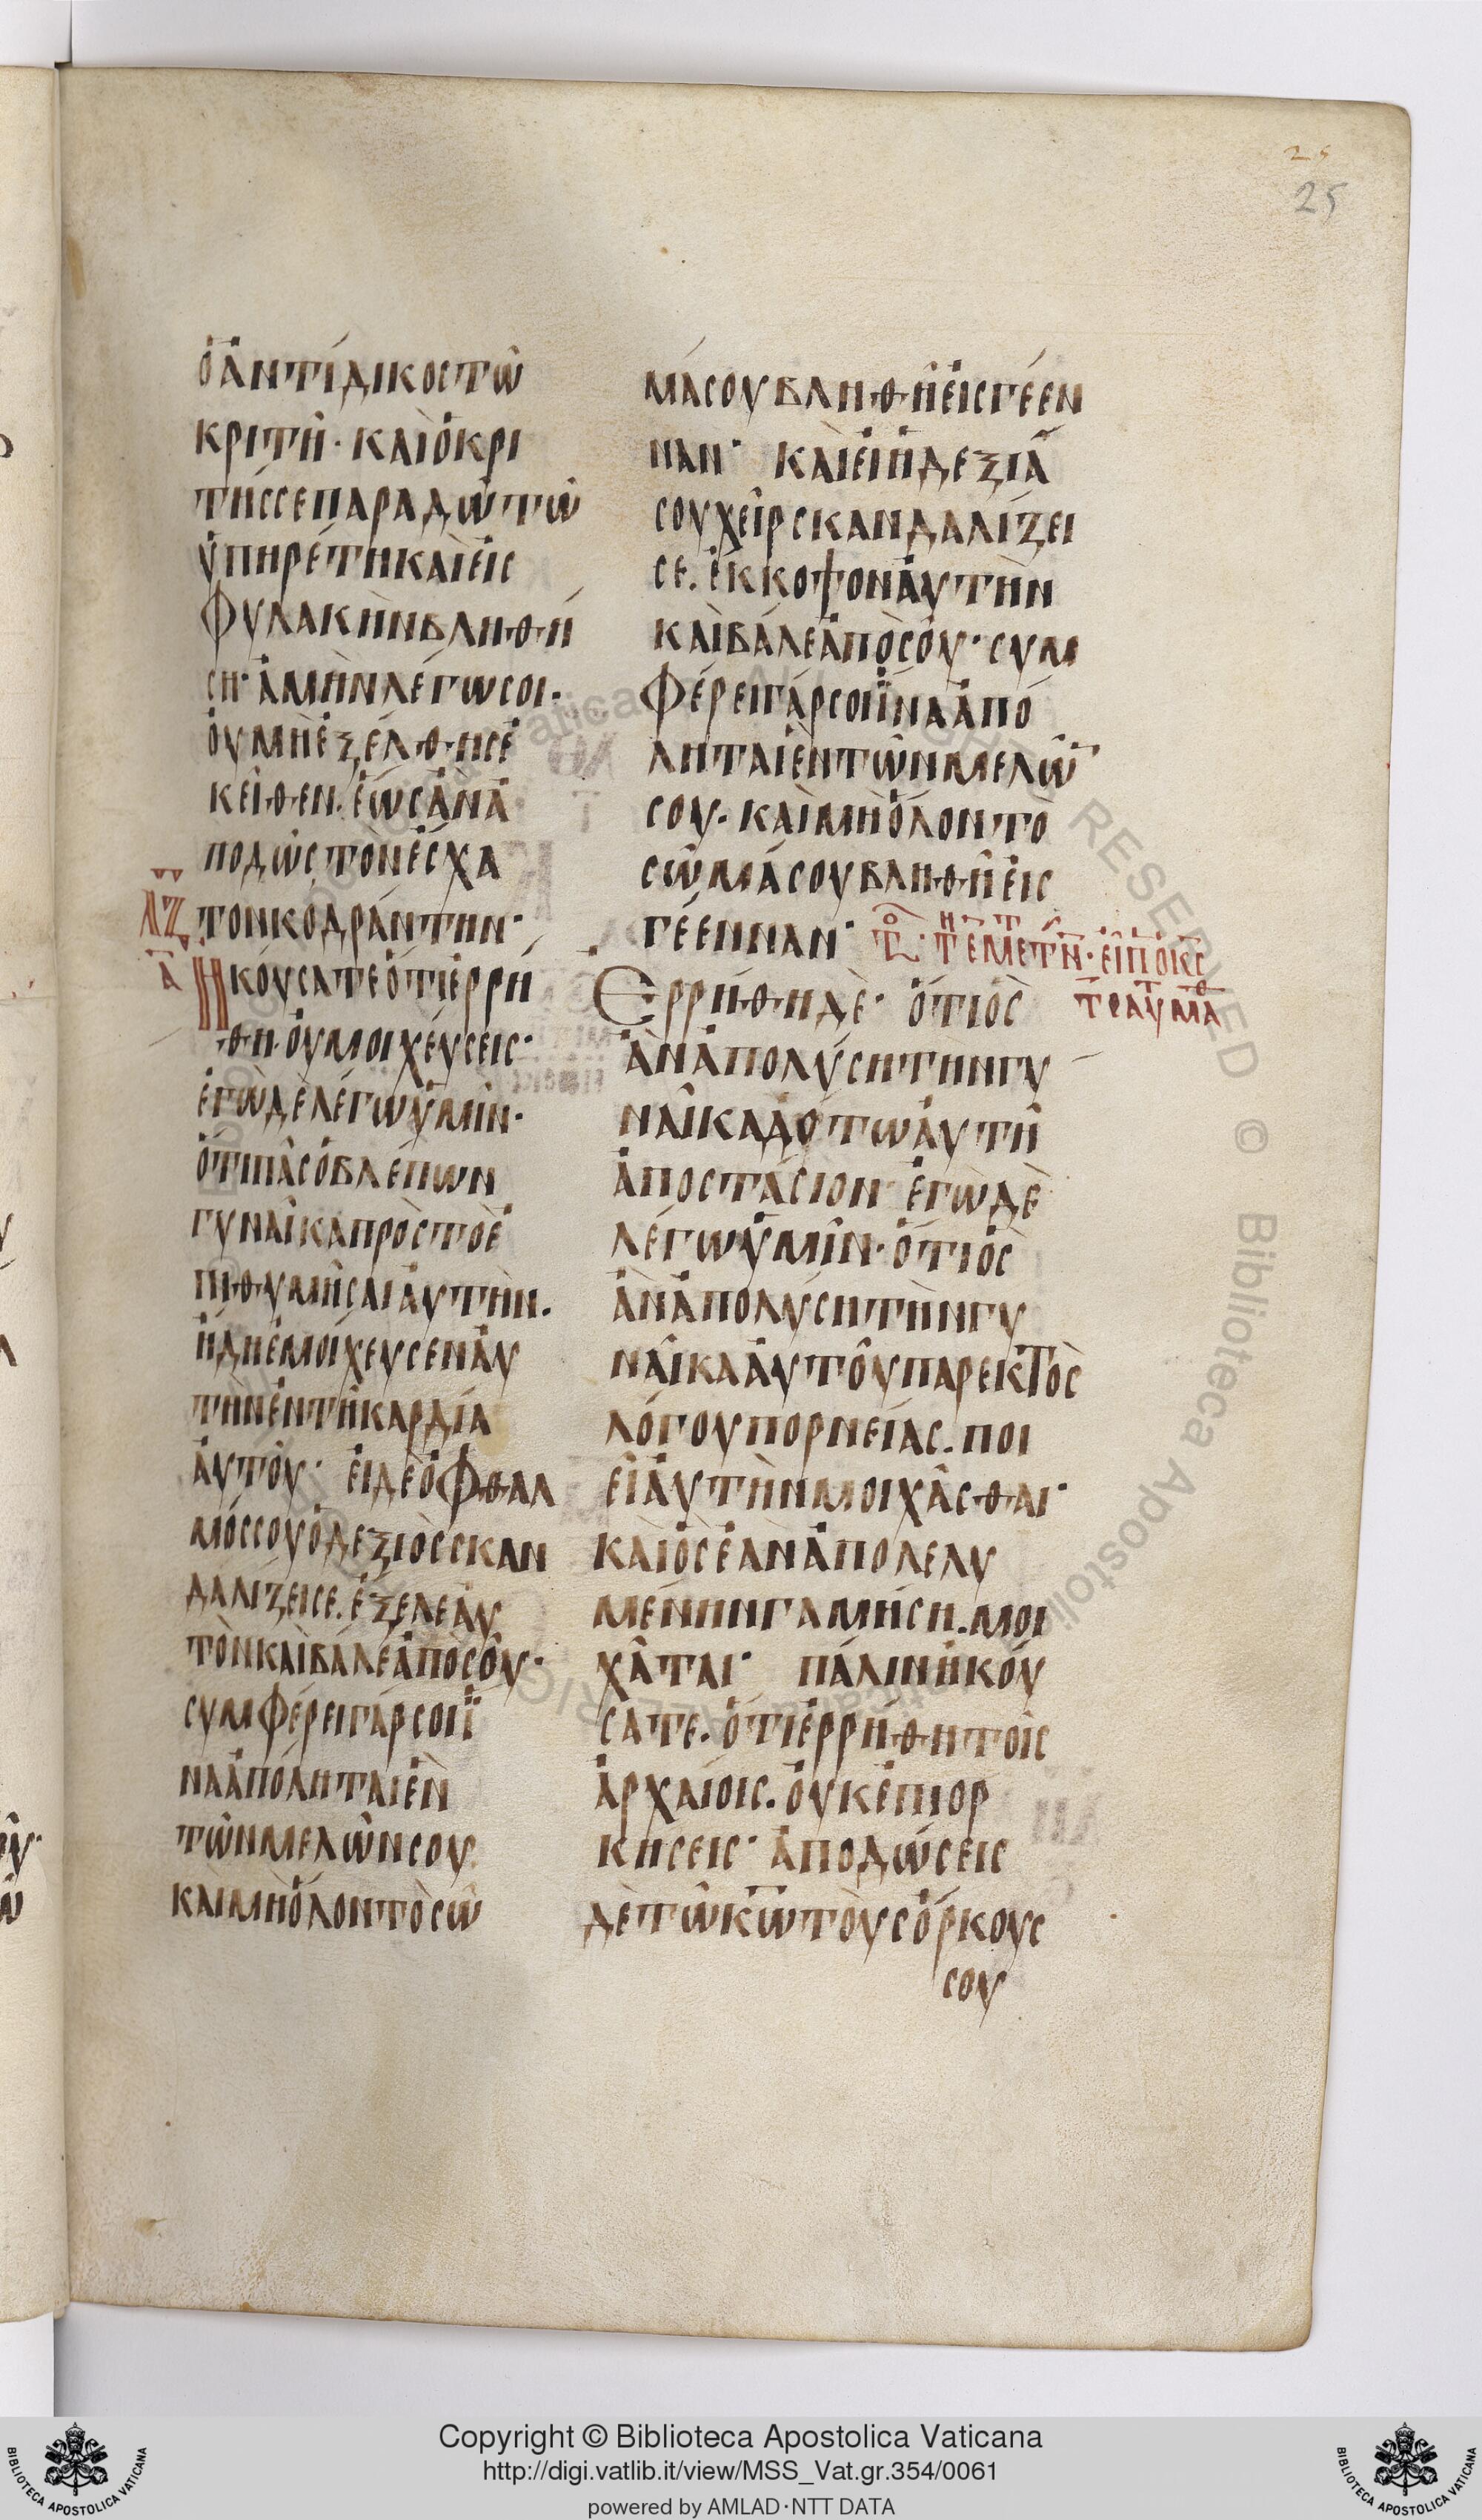 25
25
ὁ ἀντίδικος τῶ
κριτῆ· καὶ ὁ κρι
τής σε παραδῶ τῶ
ὑπηρέτη καὶ εἰς
φυλακὴν βληθή
ση· ἀμὴν λέγω σοι·
οὐ μὴ ἐξέλθης ἐ
κεῖθεν. ἕως ἂν ἀ
ποδῶς τὸν ἔσχα
τον κοδράντην·
ΛΖ
Α
Ἠκούσατε ὅτι ἐρρή
θη· οὐ μοιχεύσεις·
ἐγὼ δὲ λέγω ὑμῖν·
ὅτι πᾶς ὁ βλέπων
γυναῖκα πρὸς τὸ ἐ
πιθυμῆσαι αὐτὴν.
ἤδη ἐμοίχευσεν αὐ
τὴν ἐν τῆ καρδία
αὐτοῦ· εἰ δὲ ὀφθαλ
μός σου ὁ δεξιὸς σκαν
δαλίζει σε. ἔξελε αὐ
τὸν καὶ βάλε ἀπὸ σοῦ·
συμφέρει γάρ σοι ἵ
να ἀπόληται ἓν
τῶν μελῶν σου
καὶ μὴ ὅλον τὸ σῶ
μά σου βληθῆ εἰς γέεν
ναν· καὶ εἰ ἡ δεξιά
σου χεὶρ σκανδαλίζει
σε. ἔκκοψον αὐτὴν
καὶ βάλε ἀπὸ σοῦ· συμ
φέρει γάρ σοι ἵνα ἀπό
ληται ἓν τῶν μελῶ̅
σου. καὶ μὴ ὅλον τὸ
σῶμά σου βληθῆ εἰς
γέενναν·
Ἐρρήθη δὲ· ὅτι ὃς
ἂν ἀπολύση τὴν γυ
ναῖκα δότω αὐτῆ
ἀποστάσιον· ἐγὼ δὲ
λέγω ὑμῖν· ὅτι ὃς
ἂν ἀπολύση τὴν γυ
ναῖκα αὐτοῦ παρεκτὸς
λόγου πορνείας. ποι
εῖ αὐτὴν μοιχᾶσθαι·
καὶ ὃς ἐὰν ἀπολελυ
μένην γαμήση. μοι
χᾶται· πάλιν ἠκού
σατε. ὅτι ἐρρήθη τοῖς
ἀρχαίοις. οὐκ ἐπιορ
κήσεις· ἀποδώσεις
δὲ τῶ κ̅ω̅ τοὺς ὅρκους
σου
Copyright © Biblioteca Apostolica Vaticana
http://digi.vatlib.it/view/MSS_Vat.gr.354/0061
powered by AMLAD·NTT DATA